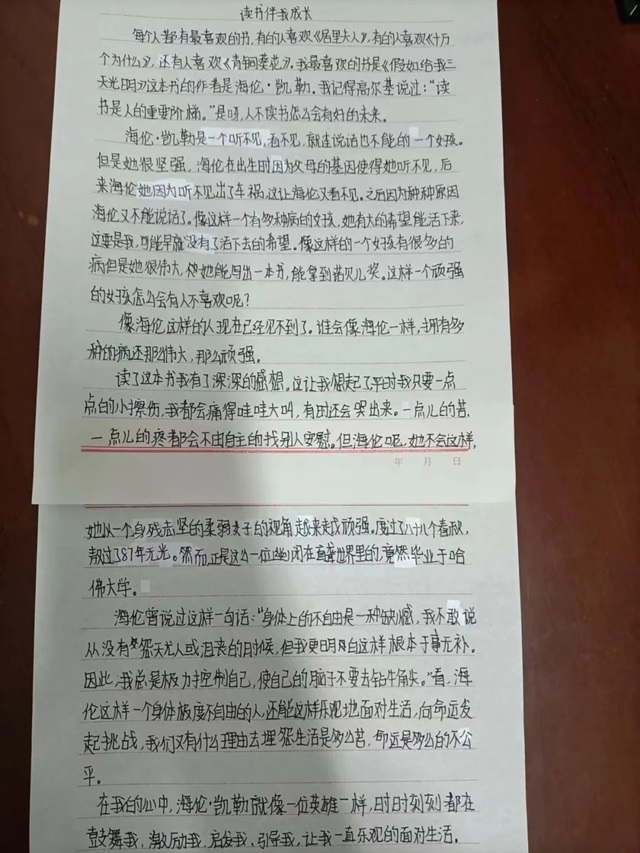 读书伴我成长
每个人都有最喜欢的书，有的人喜欢《居里夫人》，有的人喜欢《十万
个为什么》，还有人喜欢《青铜葵花》。我最喜欢的书是《假如给我三
天光明》这本书的作者是海伦·凯勒。我记得高尔基说过：“读
书是人的重要阶梯。”是呀，人不读书怎么会有好的未来。
海伦·凯勒是一个听不见，看不见，就连说话也不能的一个女孩。
但是她很坚强，海伦在出生时因为父母的基因使得她听不见，后
来海伦她因为听不见出了车祸，这让海伦又看不见。之后因为种种原因
海伦又不能说话了。像这样一个有多种病的女孩，她有大的希望能活下来，
这要是我，可能早就没有了活下去的希望。像这样的一个女孩有很多的
病但是她很伟大，她能写出一本书，能拿到诺贝儿奖。这样一个顽强
的女孩怎么会有人不喜欢呢？
像海伦这样的人现在已经见不到了。谁会像海伦一样，拥有多
种的病还那么伟大，那么顽强。
读了这本书我有了深深的感想。这让我想起了平时我只要一点
点的小擦伤，我都会痛得哇哇大叫，有时还会哭出来。一点儿的苦，
一点儿的疼都会不由自主的找别人安慰。但海伦呢，她不会这样，
年 月 日
她从一个身残志坚的柔弱女子的视角越来越顽强。度过了八十八个春秋，
熬过了87年无光。然而，正是这么一位幽闭在盲聋世界里的，竟然毕业于哈
佛大学。
海伦曾说过这样一句话：“身体上的不自由是一种缺憾，我不敢说
从没有怨天尤人或沮丧的时候，但我更明白这样根本于事无补。
因此，我总是极力控制自己，使自己的脑子不要去钻牛角尖。”看，海
伦这样一个身体极度不自由的人，还能这样乐观地面对生活，向命运发
起挑战，我们又有什么理由去埋怨生活是多么苦，命运是多么的不公
平。
在我的心中，海伦·凯勒就像一位英雄一样，时时刻刻都在
鼓舞我，激励我，启发我，引导我，让我一直乐观的面对生活。